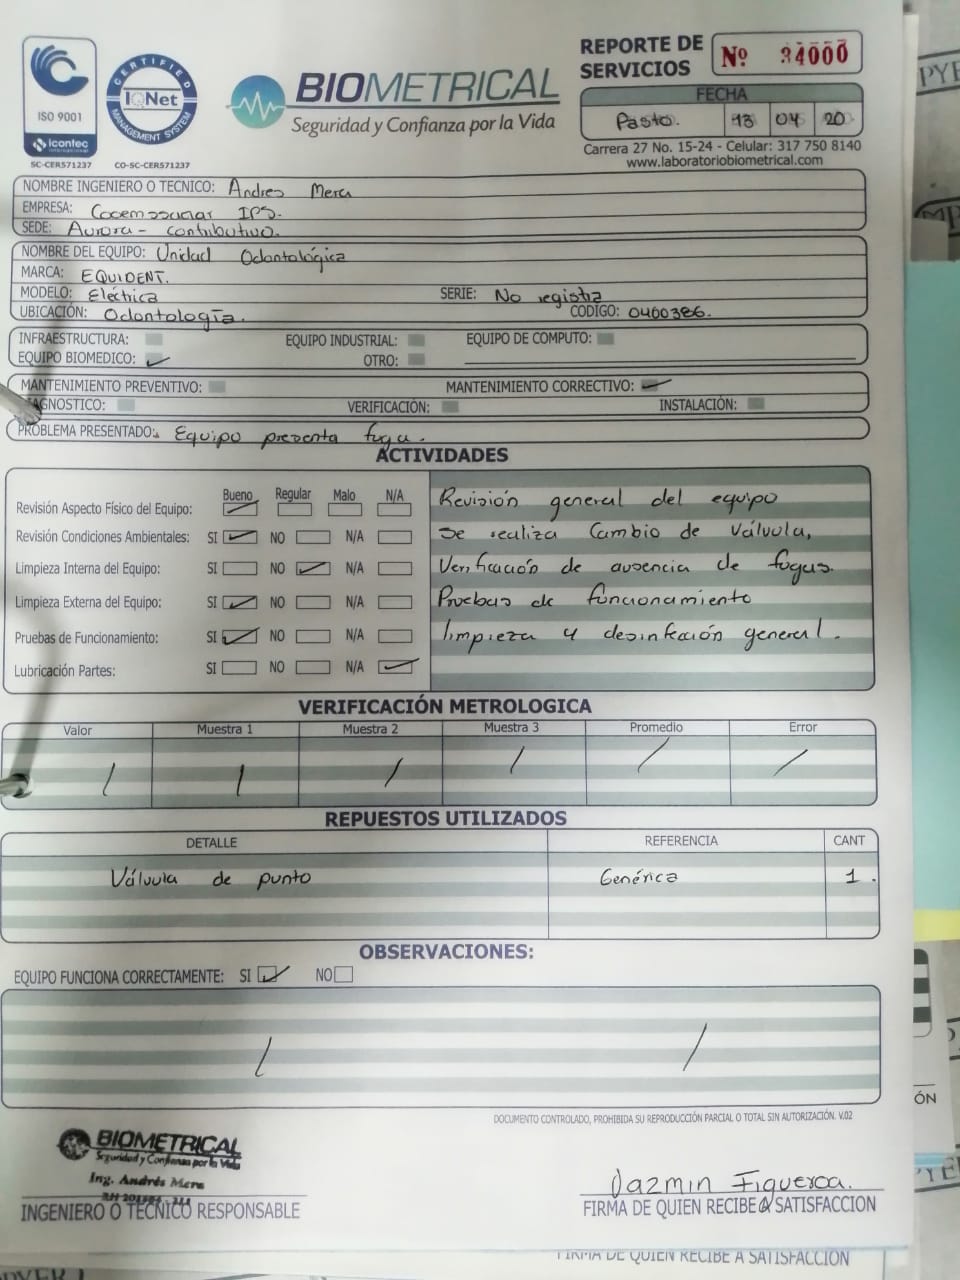 ISO 9001
icontec
SC-CER571237
CERTIFIED
IQNet
MANAGEMENT SYSTEM
CO-SC-CER571237
BIOMETRICAL
Seguridad y Confianza por la Vida
REPORTE DE
SERVICIOS
Nº 34000
FECHA
Pasto. 13 04 20
Carrera 27 No. 15-24 - Celular: 317 750 8140
www.laboratoriobiometrical.com
NOMBRE INGENIERO O TECNICO: Andres Mera
EMPRESA: IPS.
SEDE: Aurora - contributivo.
NOMBRE DEL EQUIPO: Unidad Odontológica
MARCA: EQUIDENT.
MODELO: Eléctrica SERIE: No registra
UBICACIÓN: Odontología. CODIGO: 0400386.
INFRAESTRUCTURA: EQUIPO INDUSTRIAL: EQUIPO DE COMPUTO:
EQUIPO BIOMEDICO: OTRO:
MANTENIMIENTO PREVENTIVO: MANTENIMIENTO CORRECTIVO:
AGNOSTICO: VERIFICACIÓN: INSTALACIÓN:
PROBLEMA PRESENTADO: Equipo presenta fuga.
ACTIVIDADES
Bueno Regular Malo N/A
Revisión Aspecto Físico del Equipo:
Revisión Condiciones Ambientales: SI NO N/A
Limpieza Interna del Equipo: SI NO N/A
Limpieza Externa del Equipo: SI NO N/A
Pruebas de Funcionamiento: SI NO N/A
Lubricación Partes: SI NO N/A
Revisión general del equipo
se realiza Cambio de Válvula,
Verificación de ausencia de fugas.
Pruebas de funcionamiento
limpieza y desinfección general.
VERIFICACIÓN METROLOGICA
Valor Muestra 1 Muestra 2 Muestra 3 Promedio Error
/ / / / / /
REPUESTOS UTILIZADOS
DETALLE REFERENCIA CANT
Válvula de punto Genérica 1.
OBSERVACIONES:
EQUIPO FUNCIONA CORRECTAMENTE: SI NO
/ /
DOCUMENTO CONTROLADO, PROHIBIDA SU REPRODUCCIÓN PARCIAL O TOTAL SIN AUTORIZACIÓN. V.02
BIOMETRICAL
Seguridad y Confianza por la Vida
Ing. Andrés Mera
INGENIERO O TECNICO RESPONSABLE
Jazmin Figueroa.
FIRMA DE QUIEN RECIBE A SATISFACCION
FIRMA DE QUIEN RECIBE A SATISFACCION